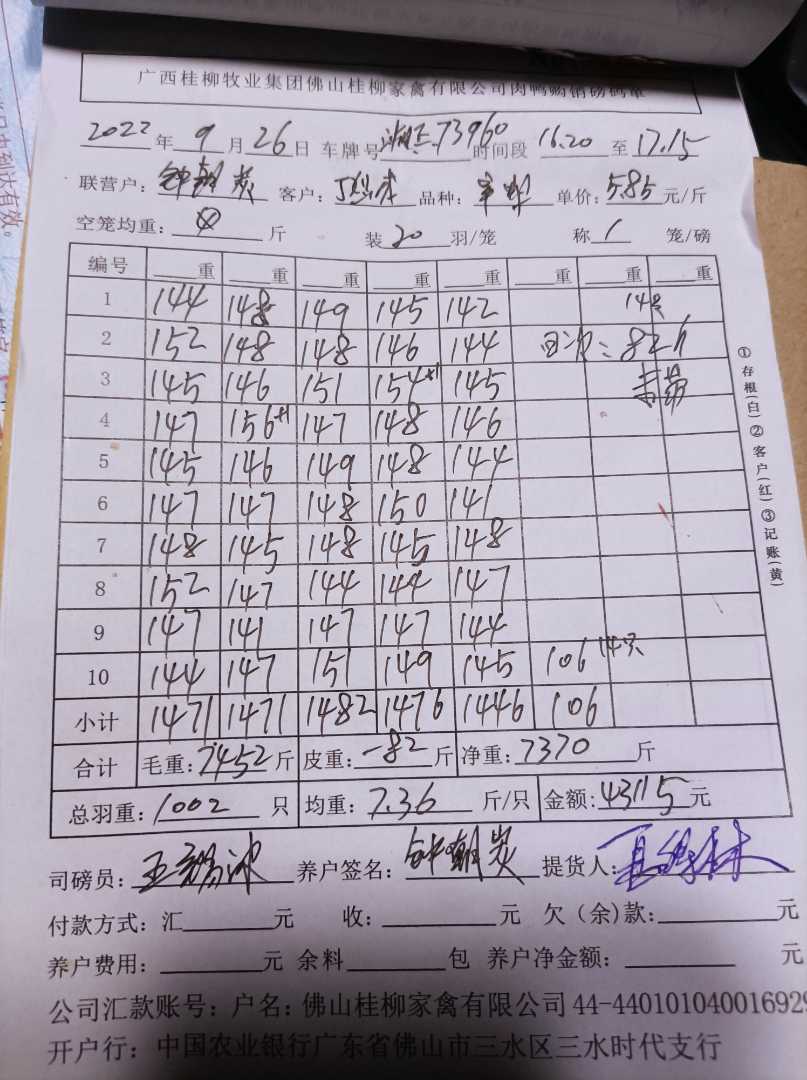 广西桂柳牧业集团佛山桂柳家禽有限公司肉鸭赊销磅码单
2022年9月26日 车牌号 73960 时间段 16.20至17.15
联营户：钟朝炭 客户： 品种： 单价：5.85元/斤
空笼均重： 斤 装20羽/笼 称1笼/磅
编号 重 重 重 重 重 重 重 重
1 144 148 149 145 142 148
2 152 148 148 146 144 82斤
3 145 146 151 154+1 145
4 147 156+1 147 148 146
5 145 146 149 148 144
6 147 147 148 150 141
7 148 145 148 145 148
8 152 147 144 144 147
9 147 141 147 147 144
10 144 147 151 149 145 106 14只
小计 1471 1471 1482 1476 1446 106
合计 毛重：7452斤 皮重：-82斤 净重：7370斤
总羽重：1002只 均重：7.36斤/只 金额：43115元
司磅员： 养户签名：钟朝炭 提货人：
付款方式：汇 元 收： 元 欠（余)款： 元
养户费用： 元 余料 包 养户净金额： 元
公司汇款账号：户名：佛山桂柳家禽有限公司44-440101040016929
开户行：中国农业银行广东省佛山市三水区三水时代支行
①存根(白)②客户(红)③记账(黄)